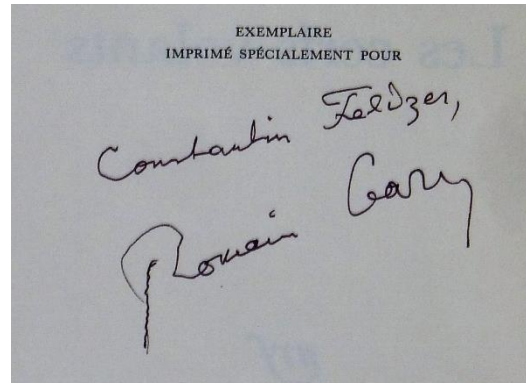 EXEMPLAIRE
IMPRIMÉ SPÉCIALEMENT POUR
Constantin Feldzer,
Romain Gary